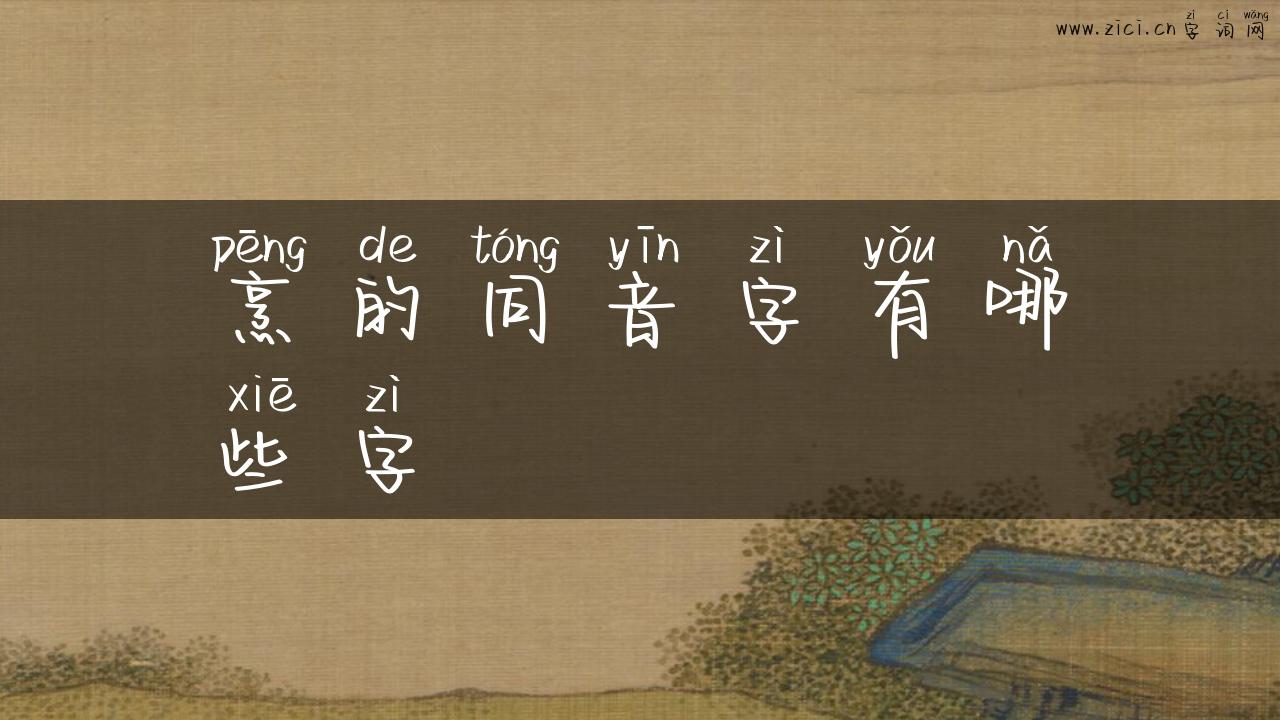 zì cí wǎng
www.zici.cn 字 词 网
pēng de tóng yīn zì yǒu nǎ
烹 的 同 音 字 有 哪
xiē zì
些 字